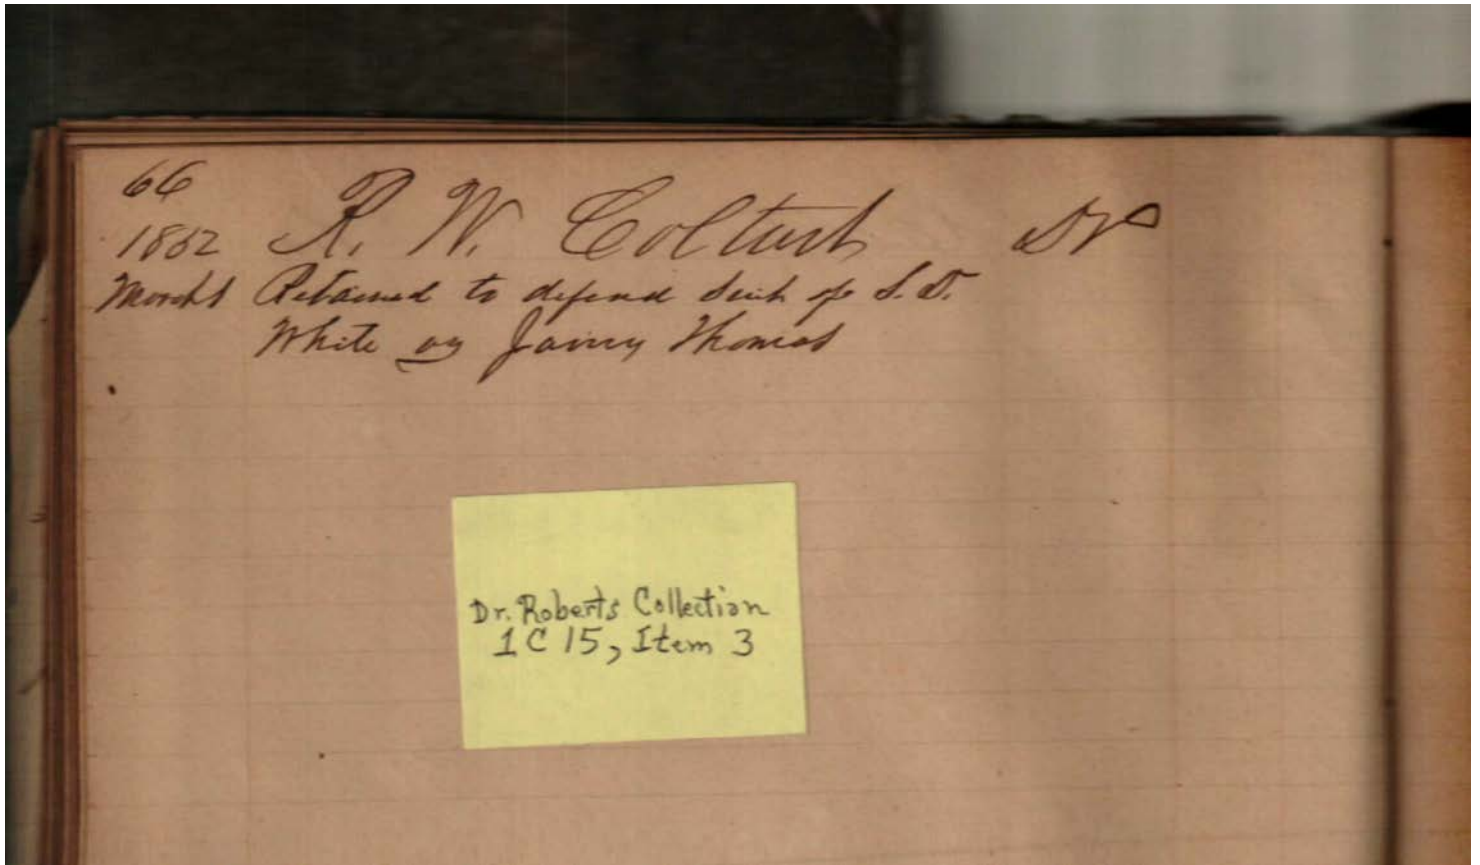 66
1862 R. W. Coltart Dr
March 1 Retained to defend Suit of S. D.
White vs Jaimy Thomas
Dr. Roberts Collection
1C15, Item 3